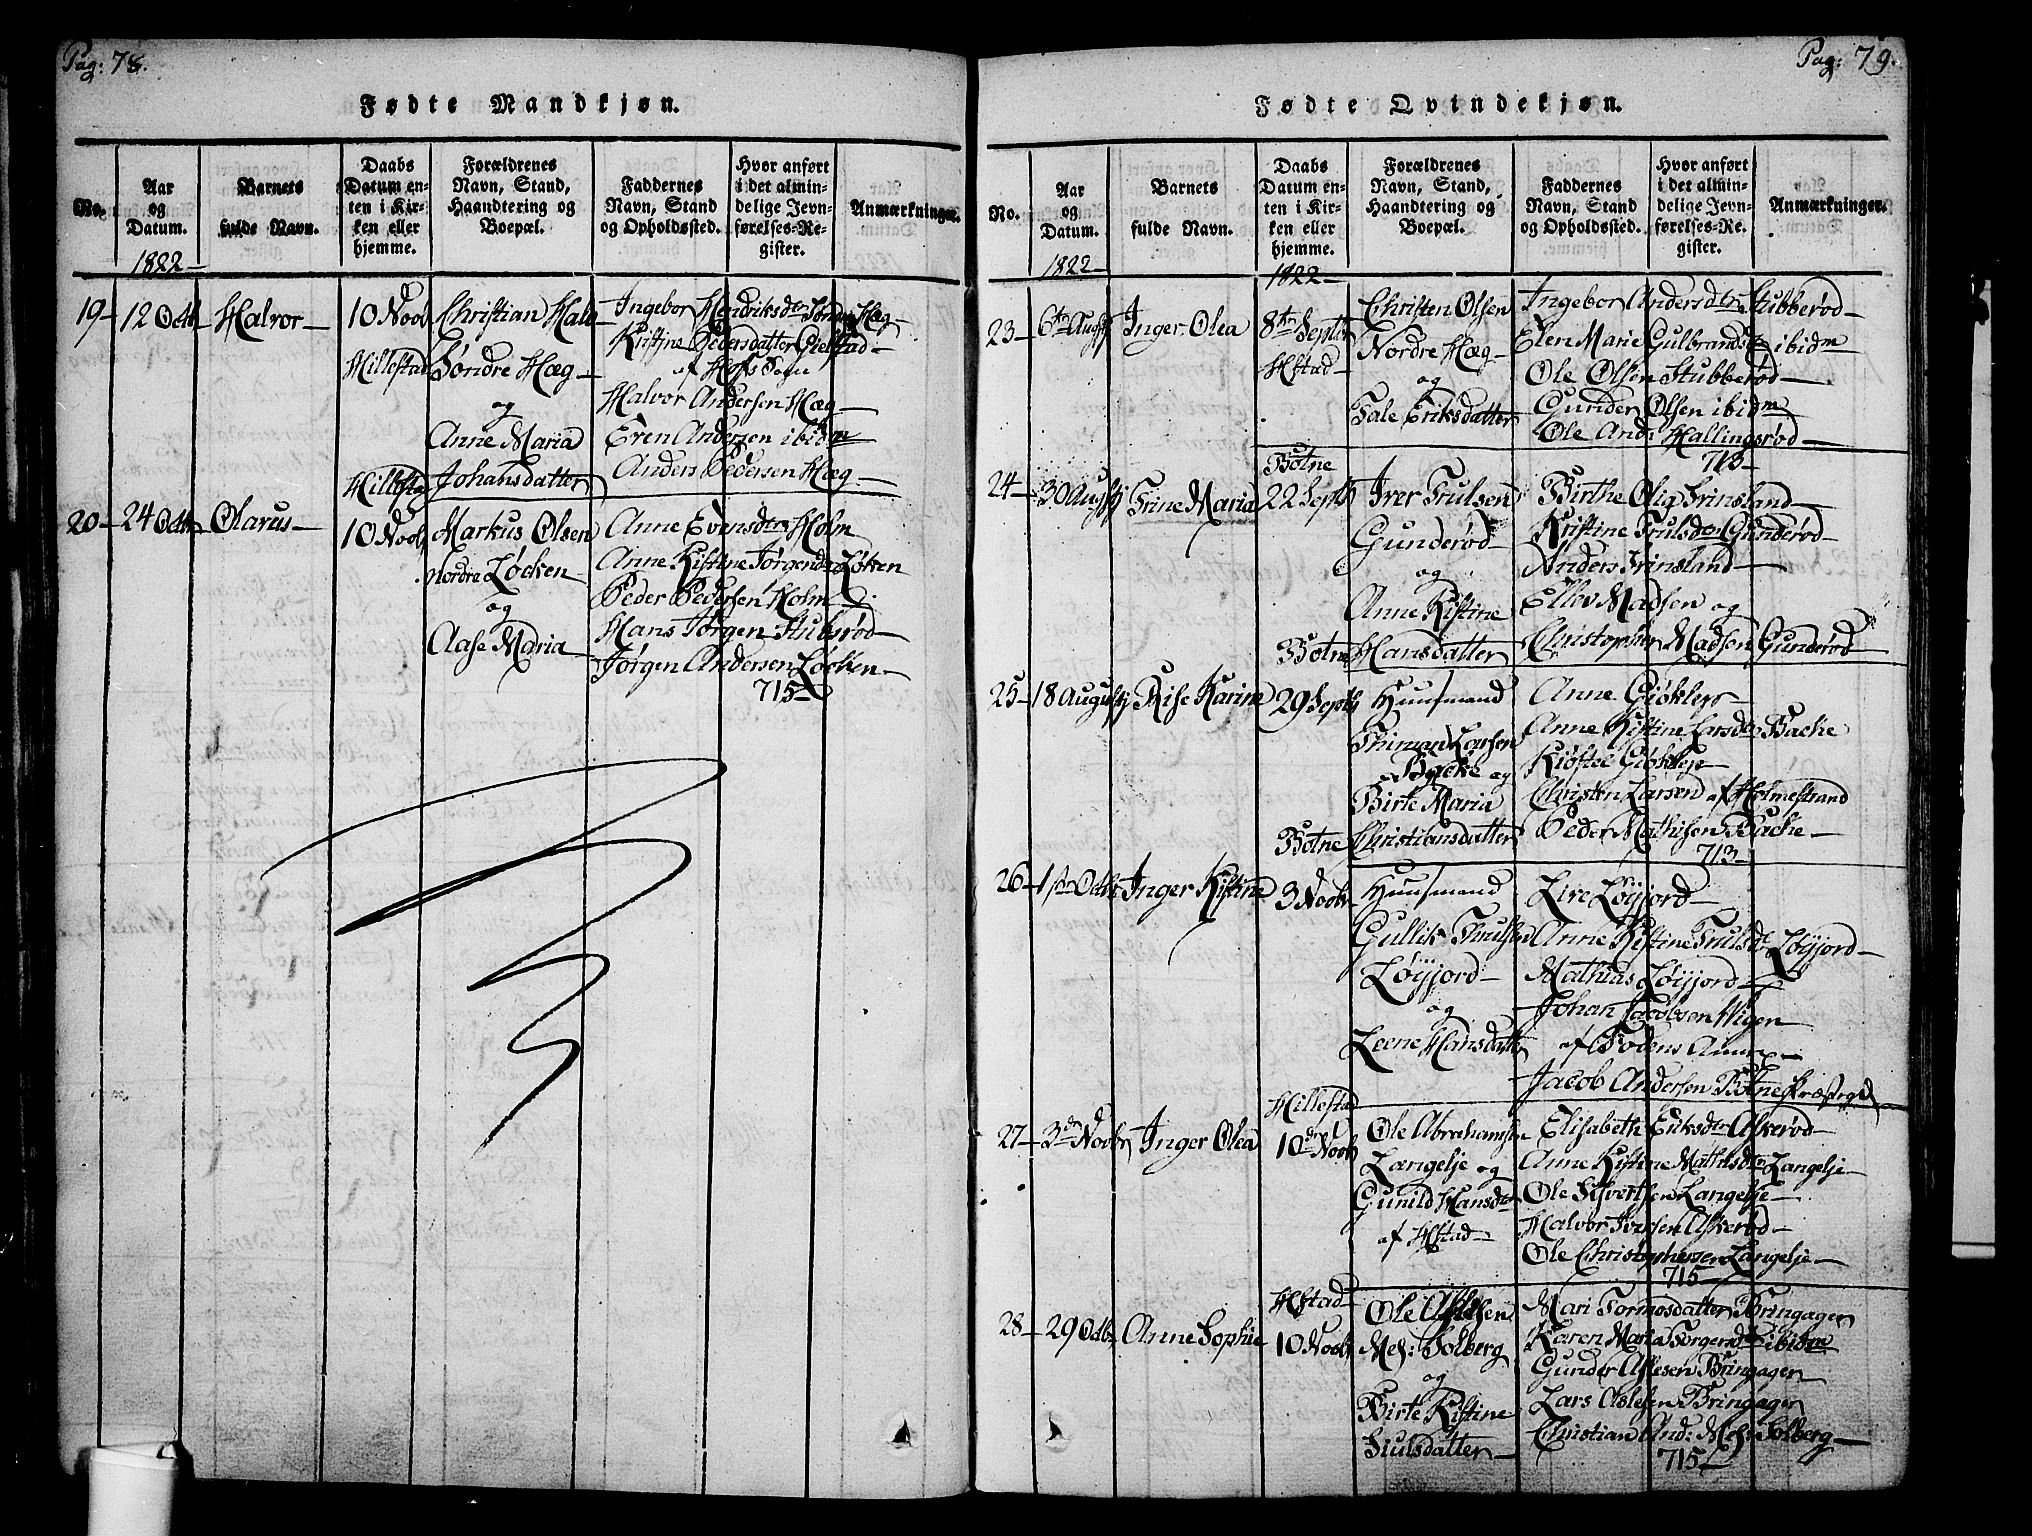 Pag: 78.
Fødte Mandkjøn.
No.
Aar og Datum.
Barnets fulde Navn.
Daabs Datum enten i Kirken eller hjemme.
Forældrenes Navn, Stand, Haandtering og Boepæl.
Faddernes Navn, Stand og Opholdssted.
Hvor anført i det almindelige Jevnførelses-Register.
Anmærkninger.
1822
19 12 Octb Halvor
10 Novb
Hillestad
Christian
Søndre Hæg
og
Anne Maria
Johansdatter
Ingebor Hendriksdtr Søndre Hæg
Kristine Pedersdatter
af Hofs Sogn
Halvor Andersen Hæg
Even Andersen ibidm
Anders Pedersen Hæg
20 24 Octb Olarus
Hillestad
10 Novb
Markus Olsen
Nordre Løcken
og
Aase Maria
Anne Evensdtr Holm
Anne Kistine Jørgensdtr Løken
Peder Pedersen Holm
Hans Jørgen Stubsrød
Jørgen Andersen Løcken
715
Pag: 79.
Fødte Qvindekjøn.
No.
Aar og Datum.
Barnets fulde Navn.
Daabs Datum enten i Kirken eller hjemme.
Forældrenes Navn, Stand, Haandtering og Boepæl.
Faddernes Navn, Stand og Opholdssted.
Hvor anført i det almindelige Jevnførelses-Register.
Anmærkninger.
1822
1822
23 6te Augstj Inger Olea
8de Septbr
Hstad
Christen Olsen
Nordre Hæg
og
Tale Eriksdatter
Ingebor Andersdtr Stubberød
Elen Marie Gulbrandsdtr ibidm
Ole Olsen Stubberød
Gunder Olsen ibidm
Ole And: Hallingsrød
713
24 30 Augstj Trine Maria
Botne
22 Septb
Iver Trulsen
Gunderød
og
Anne Kistine
Hansdatter
Birthe Olia Frinsland
Kristine Trulsdtr Gunderød
Anders Frinsland
Ellev Madsen og
Christopher Madsen Gunderød
25 18 Augustj Rise Karine
Botne
29 Septb
Huusmand
Larsen
Backe og
Birte Maria
Christiansdatter
Anne Giøklep
Anne Kistine Larsdtr Backe
Kiøstel Giøkleje
Christen Larsen af Holmestrand
Peder Mathisen Backe
713
26 1ste Octbr Inger Kistine
Botne
3 Novbr
Huusmand
Gullik Thrulsen
Løyjord
og
Leene Hansdatter
Live Løyjord
Anne Kistine Trulsdtr Løyjord
Mathias Løyjord
Johan Jacobsen Wigen
af Annex
Jacob Andersen Botne Præstegd
27 3de Novbr Inger Olea
Hillestad
10de Novb
Ole Abrahamsen
Langelje og
Gunild Hansdtr
af Hstad
Elisabeth Eriksdtr Askerød
Anne Kistine Mathisdtr Langelje
Ole Sivertsen Langelje
Halvor Iversen Askerød
Ole Christophersen Langelje
715
28 29 Octb, Anne Sophie
Hstad
10 Novb
Ole Aslesen
Mel: Solberg
og
Birte Kistine
Siulsdatter
Mari Tormosdatter Bringager
Karen Maria Torgersd ibidm
Gunder Aslesen Bringager
Lars Aslesen Bringager
Christian And: Mel: Solberg
715